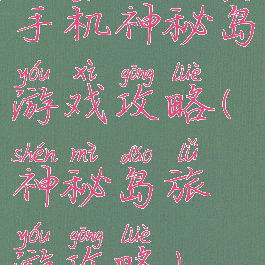 手机神秘岛
yóu xì gōng lüè
游戏攻略(
shén mì dǎo lǚ
神秘岛旅
yóu gōng lüè
游攻略)